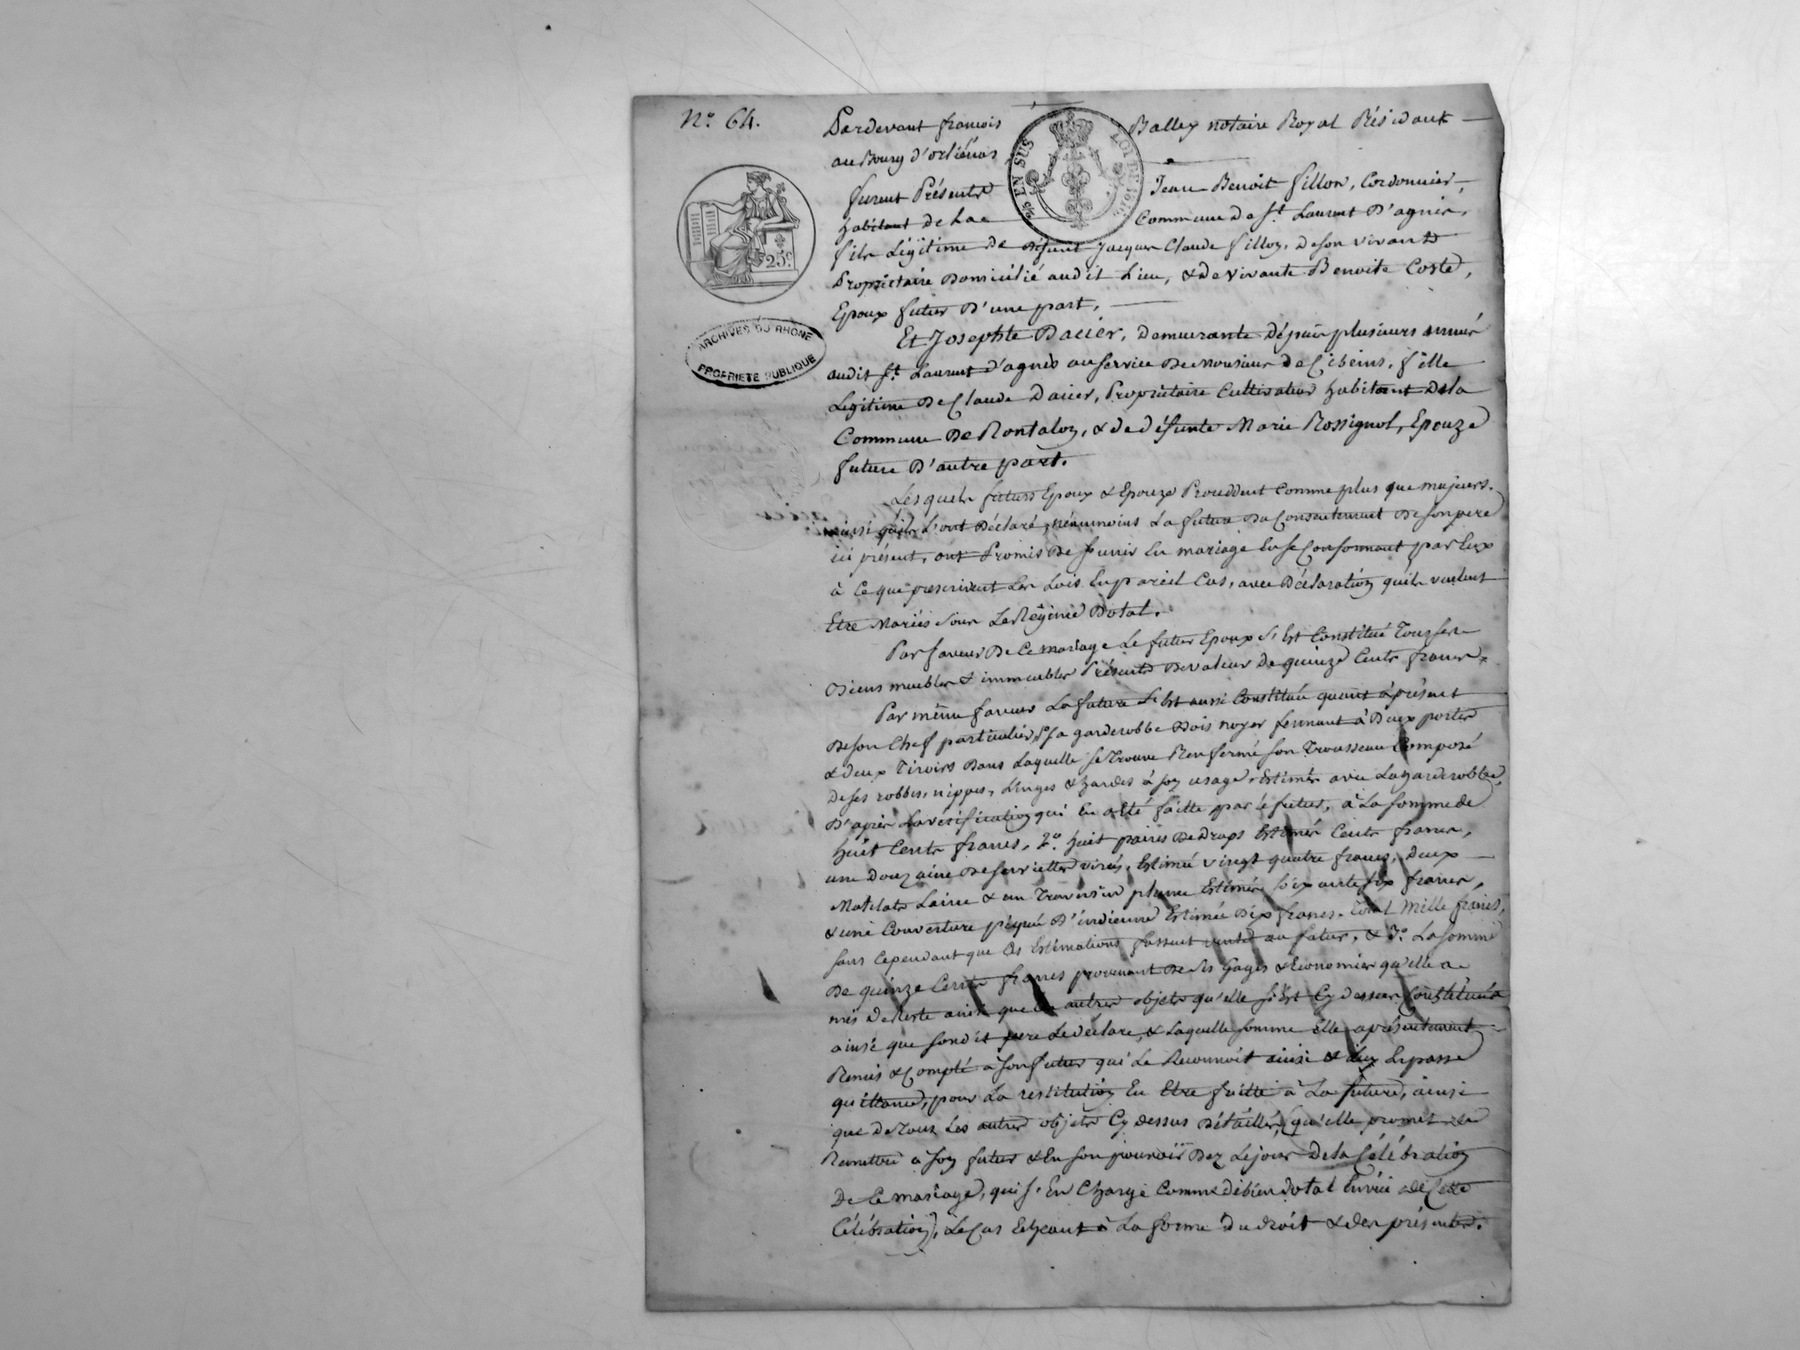 N.º 64.
Pardevant françois Balley notaire Royal Résidant
au Bourg d'orliénas
furent Présents Jean Benoit fillon, Cordonnier,
habitant de la Commune de St. Laurent D'agnis,
fils Légitime de défunt Jacques Claude fillon, de son vivant
Propriétaire Domicilié audit Lieu, & de vivante Benoite Coste,
Epoux futur D'une part,
Et Josephte Dacier, demeurante dépuis plusieurs année
audit St. Laurent d'agnis au service de monsieur de Cibeins, fille
Légitime de Claude Dacier, Propriétaire Cultivateur habitant de la
Commune de Rontalon, & de défunte Marie Rossignol, Epouze
future D'autre part.
Lesquels futurs Epoux & Epouze Procédent Comme plus que majeurs
ainsi qu'ils L'ont Déclaré, néanmoins La future du Consentement de son pere
ici présent, ont Promis de s'unir En mariage En se Conformant par Eux
à Ce que prescrivent Les Lois En pareil Cas, avec Déclaration qu'ils veulent
Etre Mariés sous Le Régime Dotal.
Par faveur de Ce mariage Le futur Epoux s'est Constitué Tous ses
Biens meubles & immeubles Présents de valeur de quinze Cents francs.
Par même faveur La future s'est aussi Constituée quant à présent
de son Chef particulier, 1º sa garderobbe Bois noyer fermant à Deux portes
& deux Tiroirs Dans Laquelle se trouve Renfermé son Trousseau Composé
de ses robbes, nippes, Linges & hardes à son usage, Estimés avec La garderobbe
D'après La vérification qui En a Eté faitte par le futur, à La somme de
huit Cents francs, 2º huit paires de Draps Estimés Cents francs,
une Douzaine de serviettes Estimée vingt quatre francs, deux
Matelats Laine & un Traversin plume Estimés soixante six francs,
& une Couverture piquée d'indienne Estimée Dix francs. Total Mille francs,
sans Cependant que Ces Estimations fassent vente au futur, & 3º La somme
De quinze Cents francs provenant de ses Gages & Economies qu'elle a
mis de Reste ainsi que les autres objets qu'elle s'est Cy dessus Constituée
ainsi que sondit pere Le déclare, & Laquelle somme Elle a présentement
Remis & Compté à son futur qui Le Reconnoit ainsi & Luy En passe
quittance, pour La restitution En Etre faitte à La future, ainsi
que de Tous Les autres objets Cy dessus Détaillés, qu'elle promet de
Remettre à son futur & En son pouvoir Dez Le jour de la Célébration
De Ce mariage, qui s'En Charge Comme de bien Dotal de Cette
Célébration, Le Cas Echeant à La forme du droit & des présentes.
25 c.
EN SUS
LOI DE 1816
ARCHIVES DU RHONE
PROPRIETE PUBLIQUE